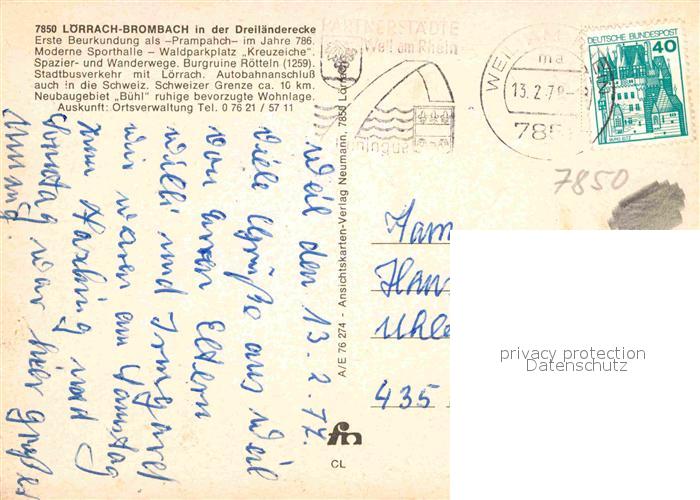 7850 LÖRRACH-BROMBACH in der Dreiländerecke
Erste Beurkundung als –Prampahch– im Jahre 786.
Moderne Sporthalle – Waldparkplatz „Kreuzeiche“.
Spazier- und Wanderwege. Burgruine Rötteln (1259).
Stadtbusverkehr mit Lörrach. Autobahnanschluß
auch in die Schweiz. Schweizer Grenze ca. 10 km.
Neubaugebiet „Bühl“ ruhige bevorzugte Wohnlage.
Auskunft: Ortsverwaltung Tel. 0 76 21 / 57 11
PARTNERSTÄDTE
Weil am Rhein
WEIL AM RHEIN
ma
13.2.79
785
DEUTSCHE BUNDESPOST
40
BURG ELTZ
7850
A/E 76 274 – Ansichtskarten-Verlag Neumann, 7850 Lörrach
Weil den 13.2.77.
viele Grüße aus Weil
von euren Eltern
Willi und Irmgard
wir waren am Samstag
zum Hochzing und
Sonntag war hier großer
Umzug.
Fam
Han
Uhle
435
fm
CL
privacy protection
Datenschutz